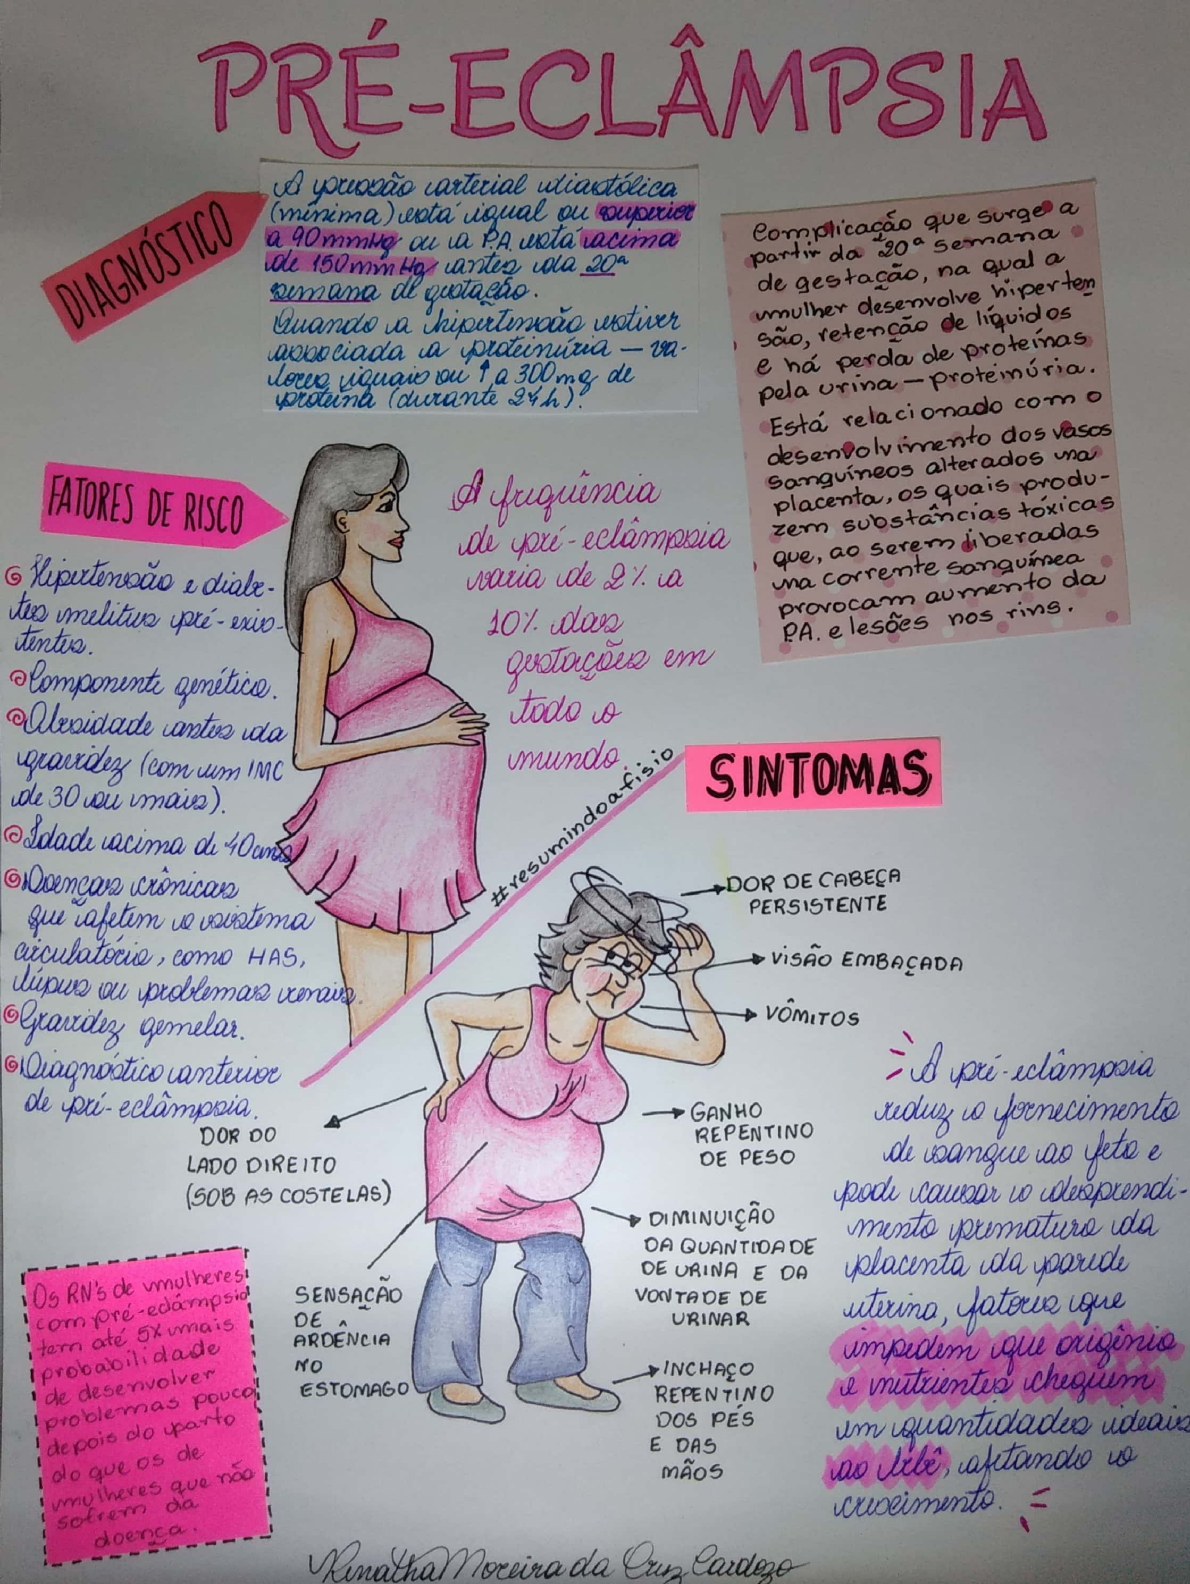 PRÉ-ECLÂMPSIA
DIAGNÓSTICO
A pressão arterial diastólica
(mínima) está igual ou superior
a 90mmHg ou a P.A. está acima
de 150mmHg antes da 20ª
semana de gestação.
Quando a hipertensão estiver
associada a proteinúria — va-
lores iguais ou ↑ a 300mg de
proteína (durante 24h).
Complicação que surge a
partir da 20ª semana
de gestação, na qual a
mulher desenvolve hiperten
são, retenção de líquidos
e há perda de proteínas
pela urina — proteinúria.
Está relacionado com o
desenvolvimento dos vasos
sanguíneos alterados na
placenta, os quais produ-
zem substâncias tóxicas
que, ao serem liberadas
na corrente sanguínea
provocam aumento da
P.A. e lesões nos rins.
FATORES DE RISCO
Hipertensão e diabe-
tes melitus pré-exis-
tentes.
Componente genético.
Obesidade antes da
gravidez (com um IMC
de 30 ou mais).
Idade acima de 40 anos
Doenças crônicas
que afetem o sistema
circulatório, como HAS,
lúpus ou problemas renais.
Gravidez gemelar.
Diagnóstico anterior
de pré-eclâmpsia.
A frequência
de pré-eclâmpsia
varia de 2% a
10% das
gestações em
todo o
mundo.
#resumindoafisio
SINTOMAS
DOR DE CABEÇA
PERSISTENTE
VISÃO EMBAÇADA
VÔMITOS
GANHO
REPENTINO
DE PESO
DIMINUIÇÃO
DA QUANTIDADE
DE URINA E DA
VONTADE DE
URINAR
INCHAÇO
REPENTINO
DOS PÉS
E DAS
MÃOS
DOR DO
LADO DIREITO
(SOB AS COSTELAS)
SENSAÇÃO
DE
ARDÊNCIA
NO
ESTOMAGO
A pré-eclâmpsia
reduz o fornecimento
de sangue ao feto e
pode causar o desprendi-
mento prematuro da
placenta da parede
uterina, fatores que
impedem que oxigênio
e nutrientes cheguem
em quantidades ideais
ao bebê, afetando o
crescimento.
Os RN's de mulheres
com pré-eclâmpsia
tem até 5x mais
probabilidade
de desenvolver
problemas pouco
depois do parto
do que os de
mulheres que não
sofrem da
doença.
Renatha Moreira da Cruz Cardozo